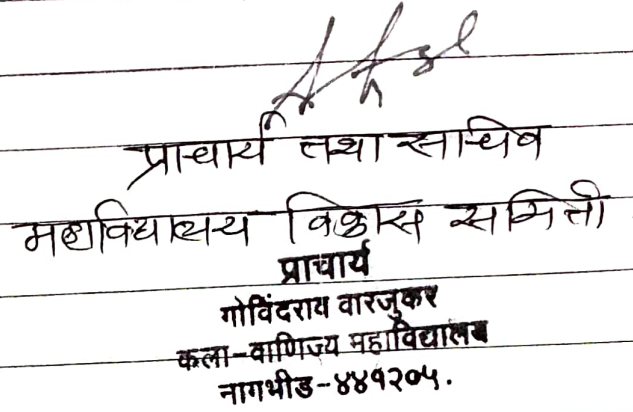 प्राचार्य तथा साचिव
महाविद्यालय विकास समिती
प्राचार्य
गोविंदराव वारजुकर
कला-वाणिज्य महाविद्यालय
नागभीड-४४१२०५.